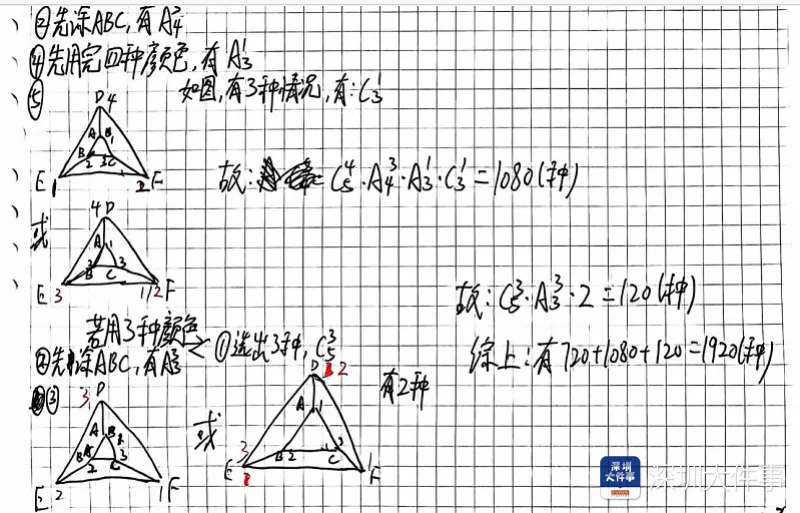 ②先涂ABC,有A³₄
④先用完四种颜色,有A¹₃
⑤ 如图,有3种情况,有:C¹₃
D 4
A B 1
2 3 C
E 1 2 F
故: C⁴₅·A³₄·A¹₃·C¹₃=1080(种)
或
4 D
A 1
3 B C 3
E 3 1/2 F
故:C³₅·A³₃·2=120(种)
若用3种颜色 ①选出3种,C³₅
②先涂ABC,有A³₃
综上:有720+1080+120=1920(种)
③
3 D
A 1
B 2 C 3
E 2 1 F
或
D 2
A 1
B 2 C 3
3
E 1 F
有2种
深圳大件事
深圳大件事